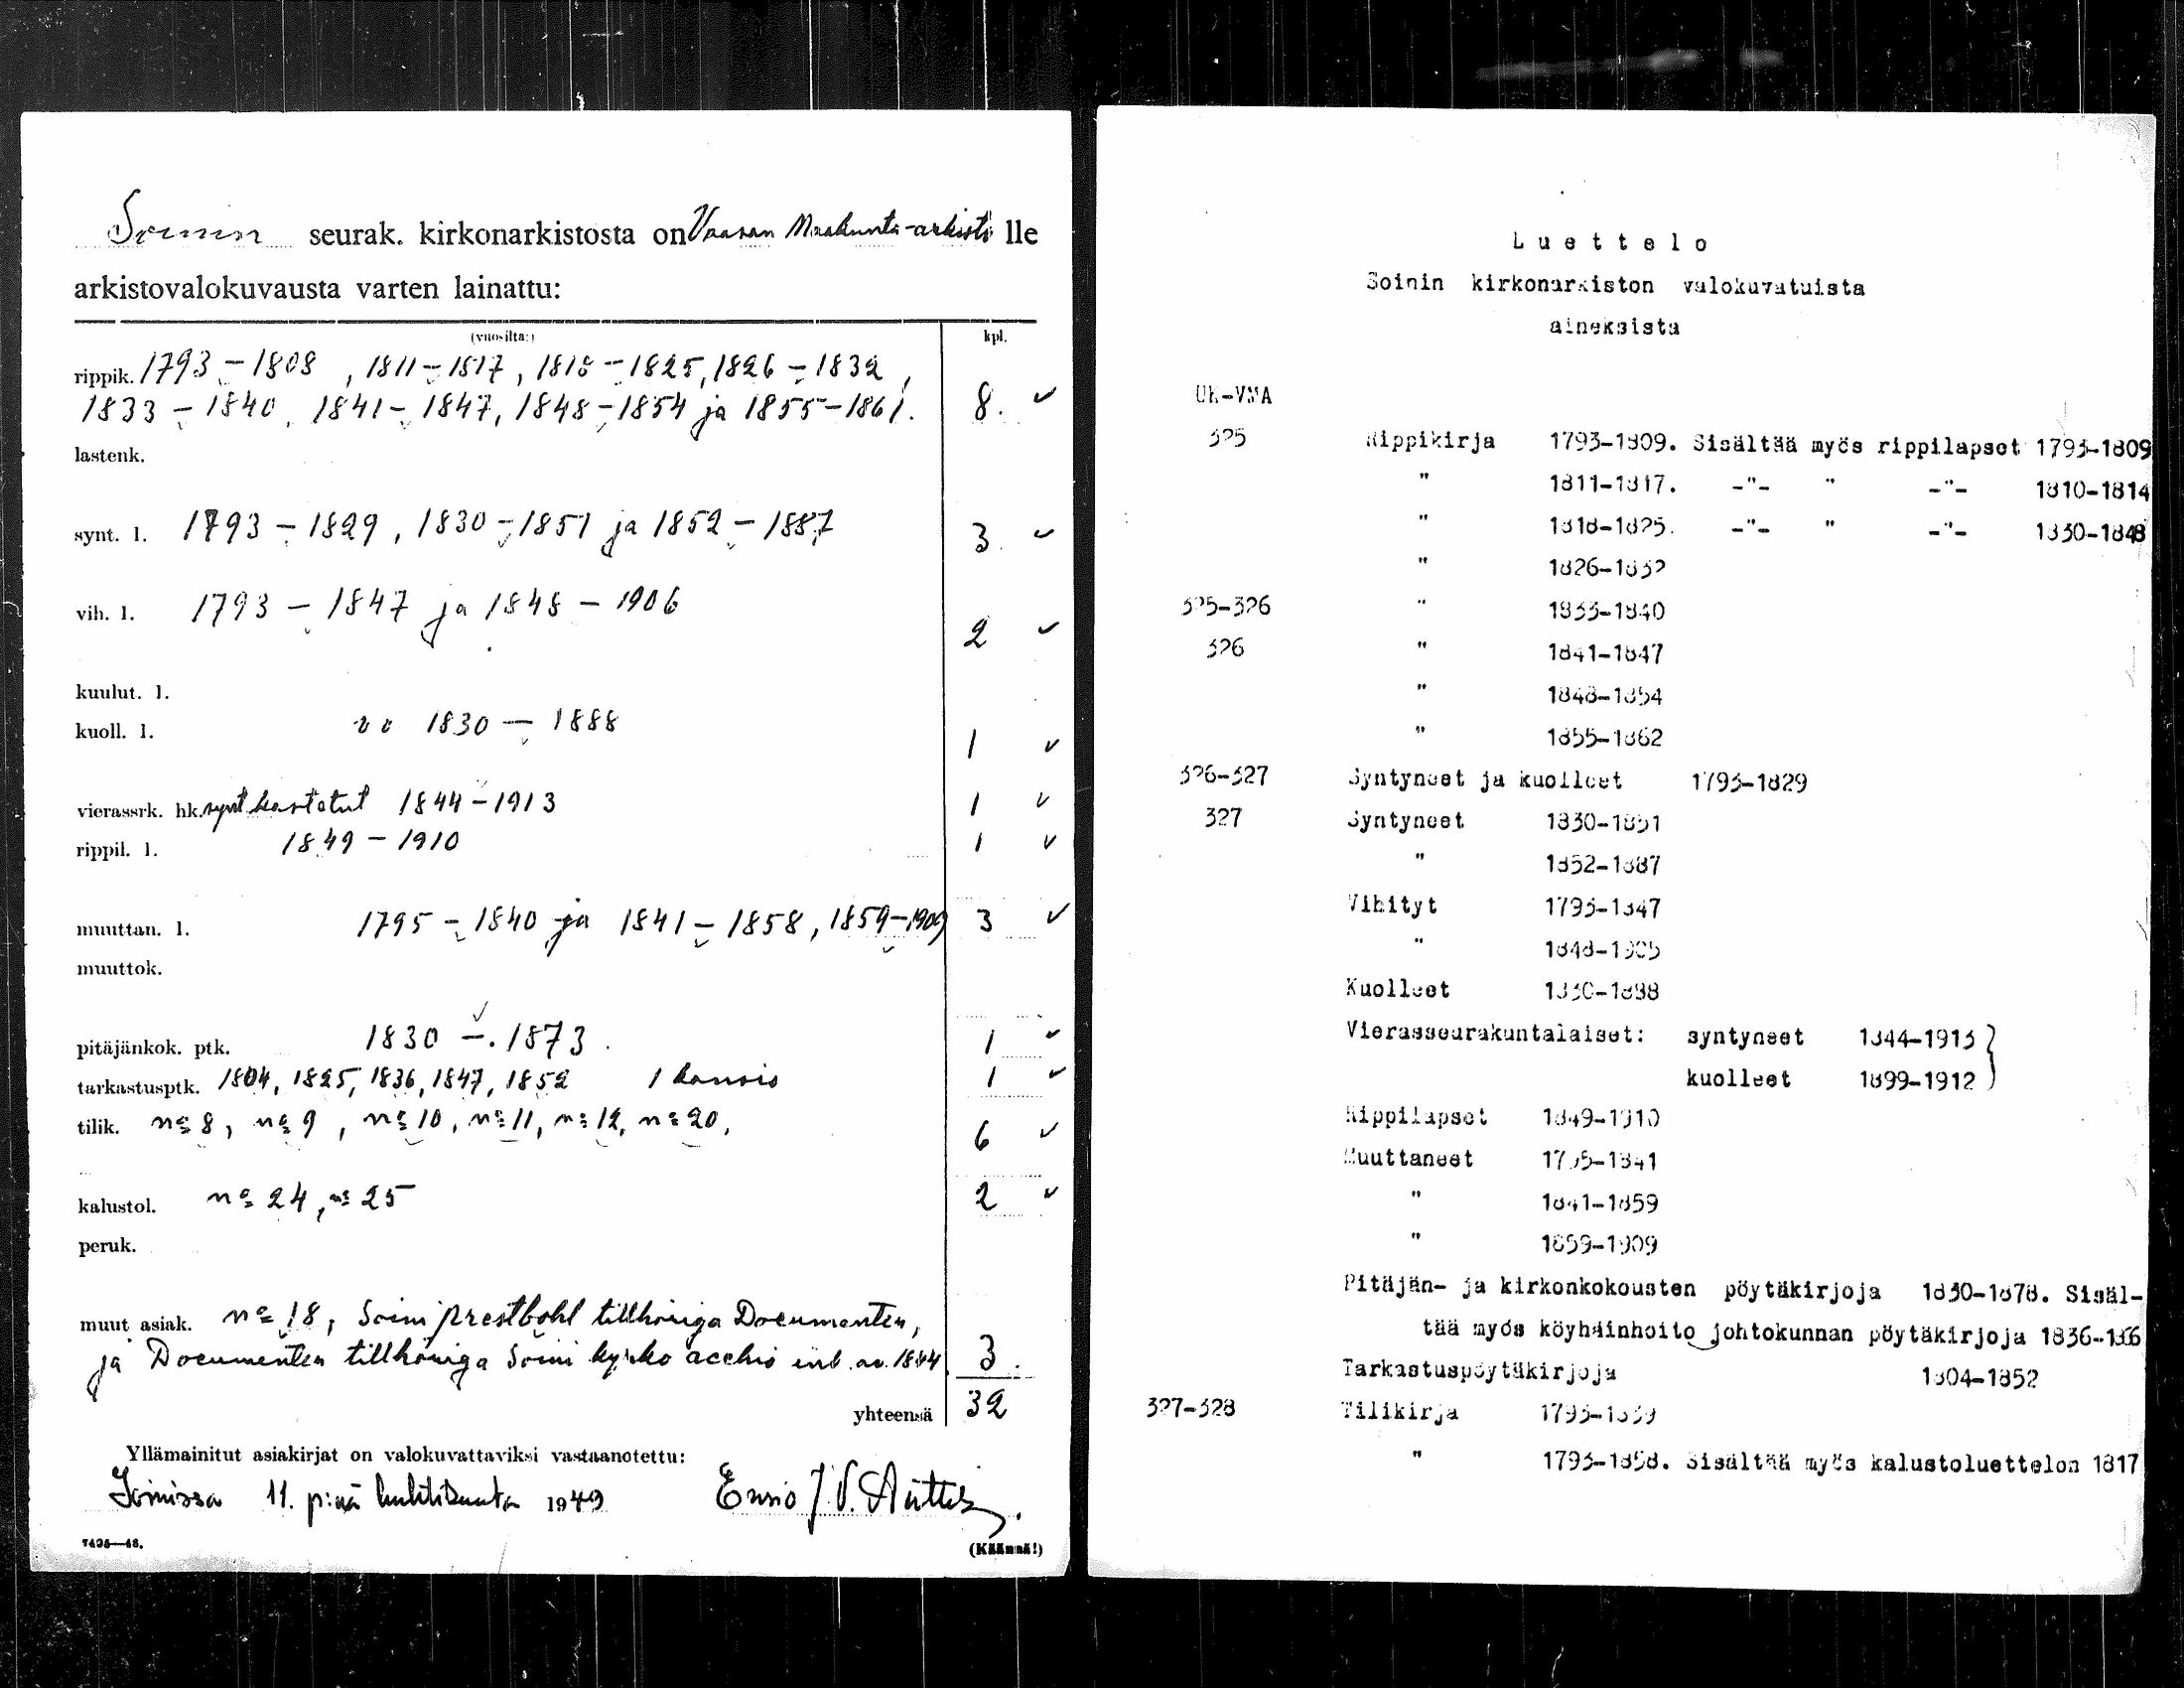 Soinin seurak. kirkonarkistosta on Vaasan Maakunta-arkisto lle
arkistovalokuvausta varten lainattu:
(vuosilta:) kpl.
rippik. 1793 – 1808, 1811 – 1817, 1818 – 1825, 1826 – 1832,
1833 – 1840, 1841 – 1847, 1848 – 1854 ja 1855 – 1861. 8.
lastenk.
synt. l. 1793 – 1829, 1830 – 1851 ja 1852 – 1887 3
vih. l. 1793 – 1847 ja 1848 – 1906 2
kuulut. l.
kuoll. l. 1830 – 1888 1
vierassrk. hk. synt kastetut 1844 – 1913 1
rippil. l. 1849 – 1910 1
muuttan. l. 1795 – 1840 ja 1841 – 1858, 1859 – 1909 3
muuttok.
pitäjänkok. ptk. 1830 – 1873. 1
tarkastusptk. 1804, 1825, 1836, 1847, 1852 1 kansio 1
tilik. nº 8, nº 9, nº 10, nº 11, nº 12, nº 20, 6
kalustol. nº 24, nº 25 2
peruk.
muut asiak. nº 18, Soini prestbohl tillhöriga Documenten,
ja Documenten tillhöriga Soini kyrko 1844 3.
yhteensä 32
Yllämainitut asiakirjat on valokuvattaviksi vastaanotettu:
Soinissa 11. p:nä huhtikuuta 1949
7495—48. (Käännä!)
Luettelo
Soinin kirkonarkiston valokuvatuista
aineksista
UK-VMA
325 Rippikirja 1793-1809. Sisältää myös rippilapset 1793-1809
" 1811-1817. -"- " -"- 1810-1814
" 1818-1825. -"- " -"- 1830-1848
" 1826-1832
325-326 " 1833-1840
326 " 1841-1847
" 1848-1854
" 1855-1862
326-327 Syntyneet ja kuolleet 1793-1829
327 Syntyneet 1830-1851
" 1852-1887
Vihityt 1793-1847
" 1848-1905
Kuolleet 1830-1898
Vierasseurakuntalaiset: syntyneet 1844-1913
kuolleet 1899-1912
Rippilapset 1849-1910
Muuttaneet 1795-1841
" 1841-1859
" 1859-1909
Pitäjän- ja kirkonkokousten pöytäkirjoja 1830-1878. Sisäl-
tää myös köyhäinhoito johtokunnan pöytäkirjoja
Tarkastuspöytäkirjoja 1804-1852
327-328 Tilikirja 1793-1839
" 1793-1858. Sisältää myös kalustoluettelon 1817